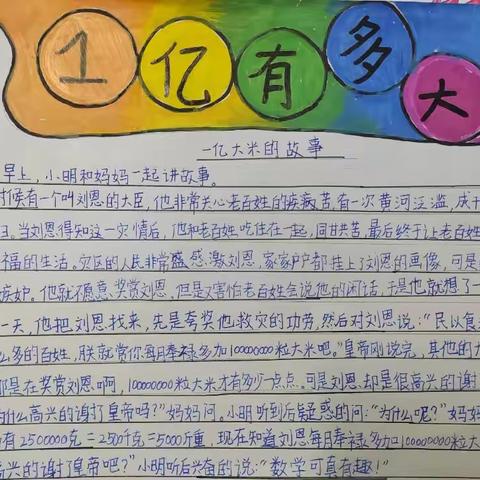 1亿有多大
一亿大米的故事
早上,小明和妈妈一起讲故事。
时候有一个叫刘恩的大臣,他非常关心老百姓的疾病苦,有一次黄河泛滥,成千
日。当刘恩得知这一灾情后,他和老百姓吃住在一起,同甘共苦,最后终于让老百姓
福的生活。灾区的人民非常盛感激刘恩,家家户户都挂上了刘恩的画像,可是
疾妒。他就不愿意奖赏刘恩,但是又害怕老百姓会说他的闲话,于是他就想了一
一天,他把刘恩找来,先是夸奖他救灾的功劳,然后对刘恩说:“民以食
么多的百姓,朕就常你每月奉禄多加100000000粒大米吧。”皇帝刚说完,其他的大
都是在奖赏刘恩啊,100000000粒大米才有多少一点点。可是刘恩却是很高兴的谢
为什么高兴的谢打皇帝吗?”妈妈问。小明听到后疑惑的问:“为什么呢?”妈妈
有2500000克=2500千克=5000斤重,现在知道刘恩每月奉禄多加100000000粒大
高兴的谢了皇帝吧?”小明听后兴奋的说:“数学可真有趣!”